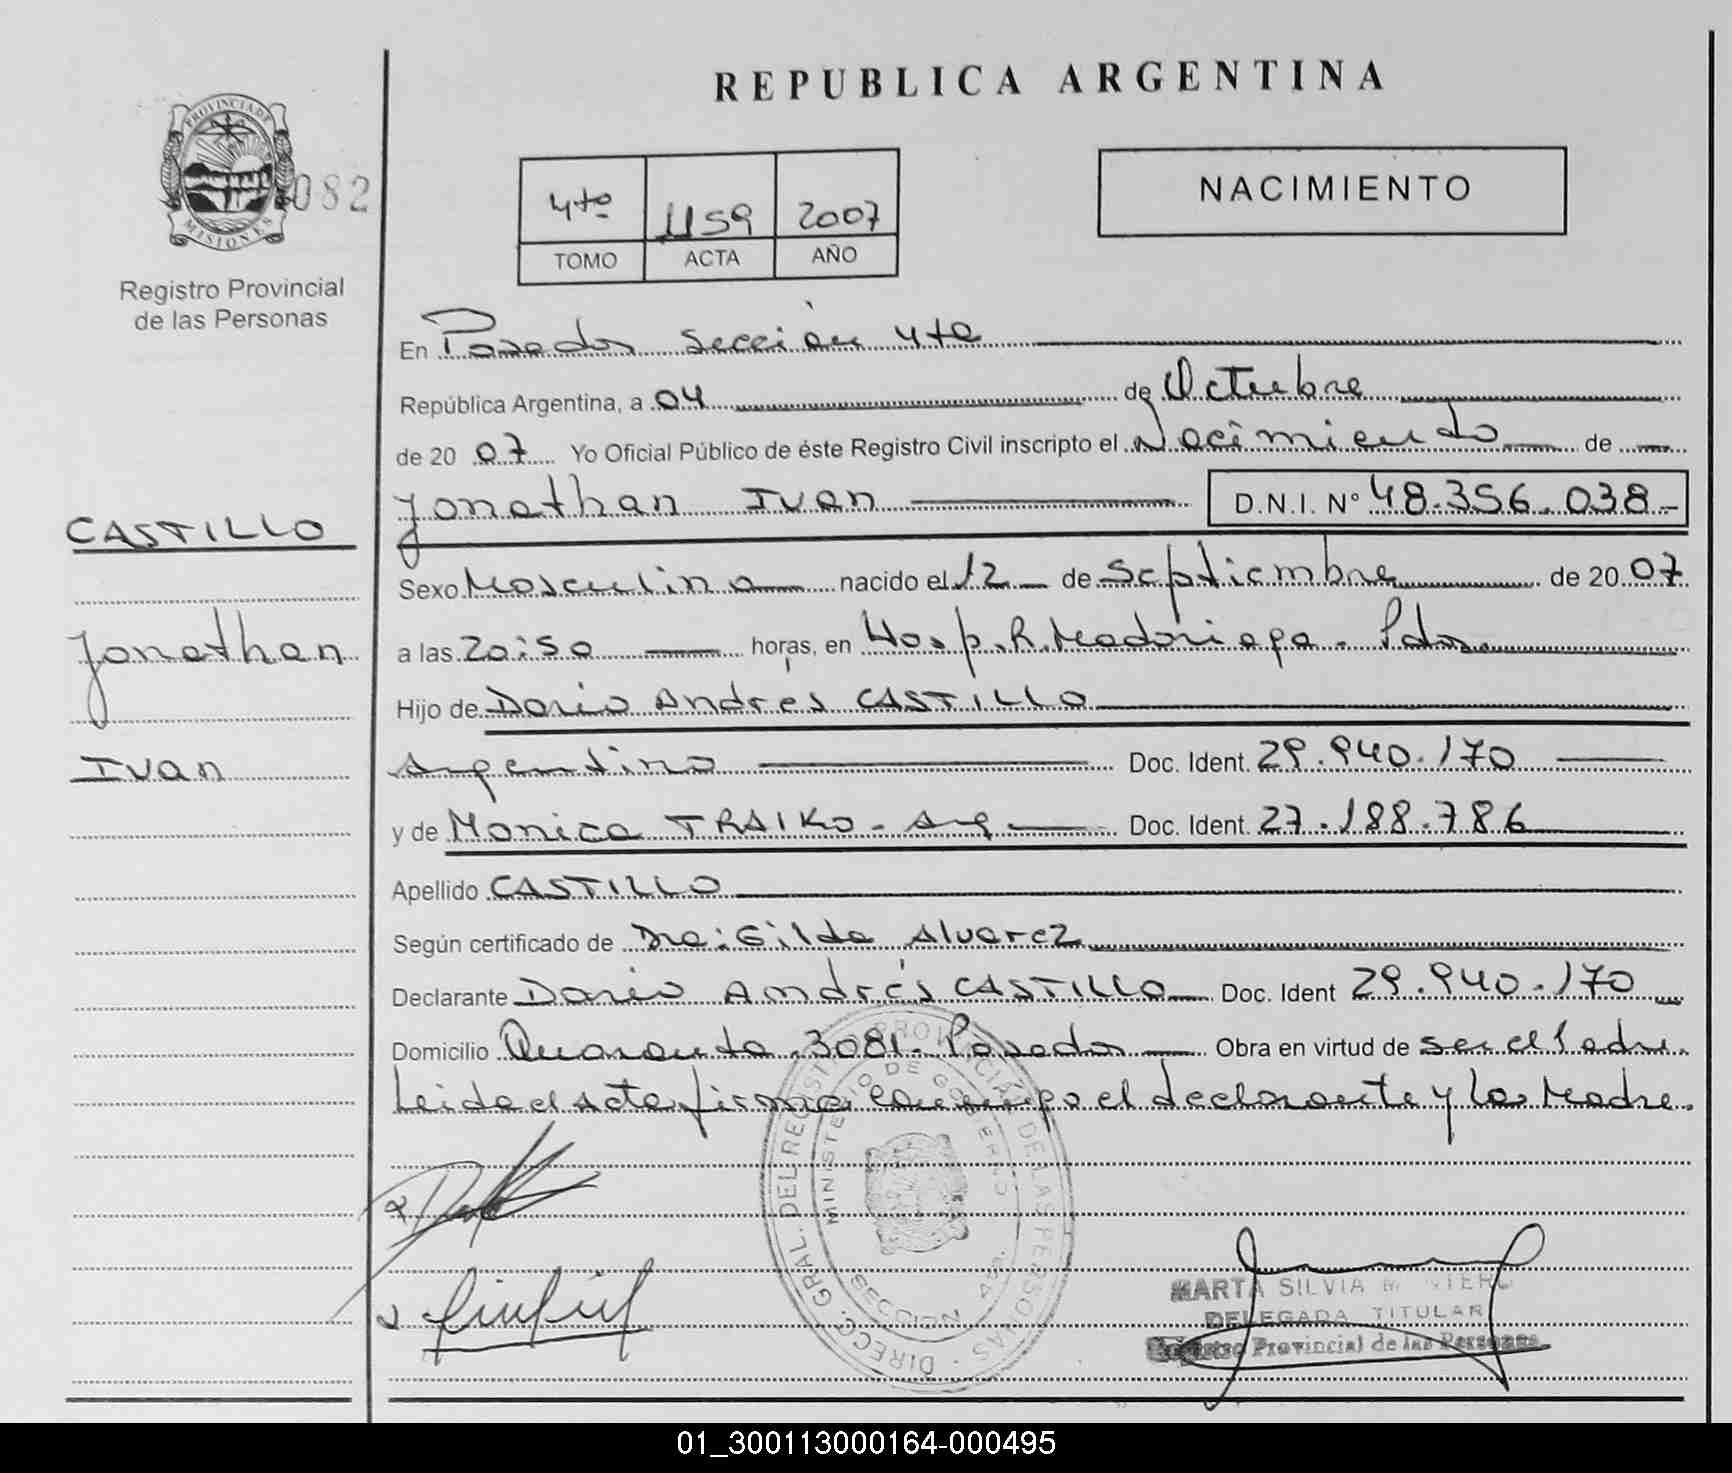 REPUBLICA ARGENTINA
PROVINCIA DE
MISIONES
082
Registro Provincial
de las Personas
4to 1159 2007
TOMO ACTA AÑO
NACIMIENTO
En Posadas Sección 4ta
República Argentina, a 04 de Octubre
de 20 07 Yo Oficial Público de éste Registro Civil inscripto el Nacimiento de
Jonathan Ivan D.N.I. Nº 48.356.038-
CASTILLO
Jonathan
Ivan
Sexo Masculino nacido el 12 de Septiembre de 20 07
a las 20:50 horas, en Hosp. R. Madariaga - Pdas.
Hijo de Dario Andrés CASTILLO
Argentino Doc. Ident. 29.940.170
y de Monica TRAIKO - Arg Doc. Ident. 27.188.786
Apellido CASTILLO
Según certificado de Dra: Gilda Alvarez
Declarante Dario Andrés CASTILLO Doc. Ident 29.940.170
Domicilio Quaranta 3081 - Posadas Obra en virtud de ser el Padre.
Leida el acta firman conmigo el declarante y la Madre.
DIRECC. GRAL. DEL REGISTRO PROVINCIAL DE LAS PERSONAS
MINISTERIO DE GOBIERNO
SECCION 4ta.
MARTA SILVIA
DELEGADA TITULAR
Registro Provincial de las Personas
01_300113000164-000495